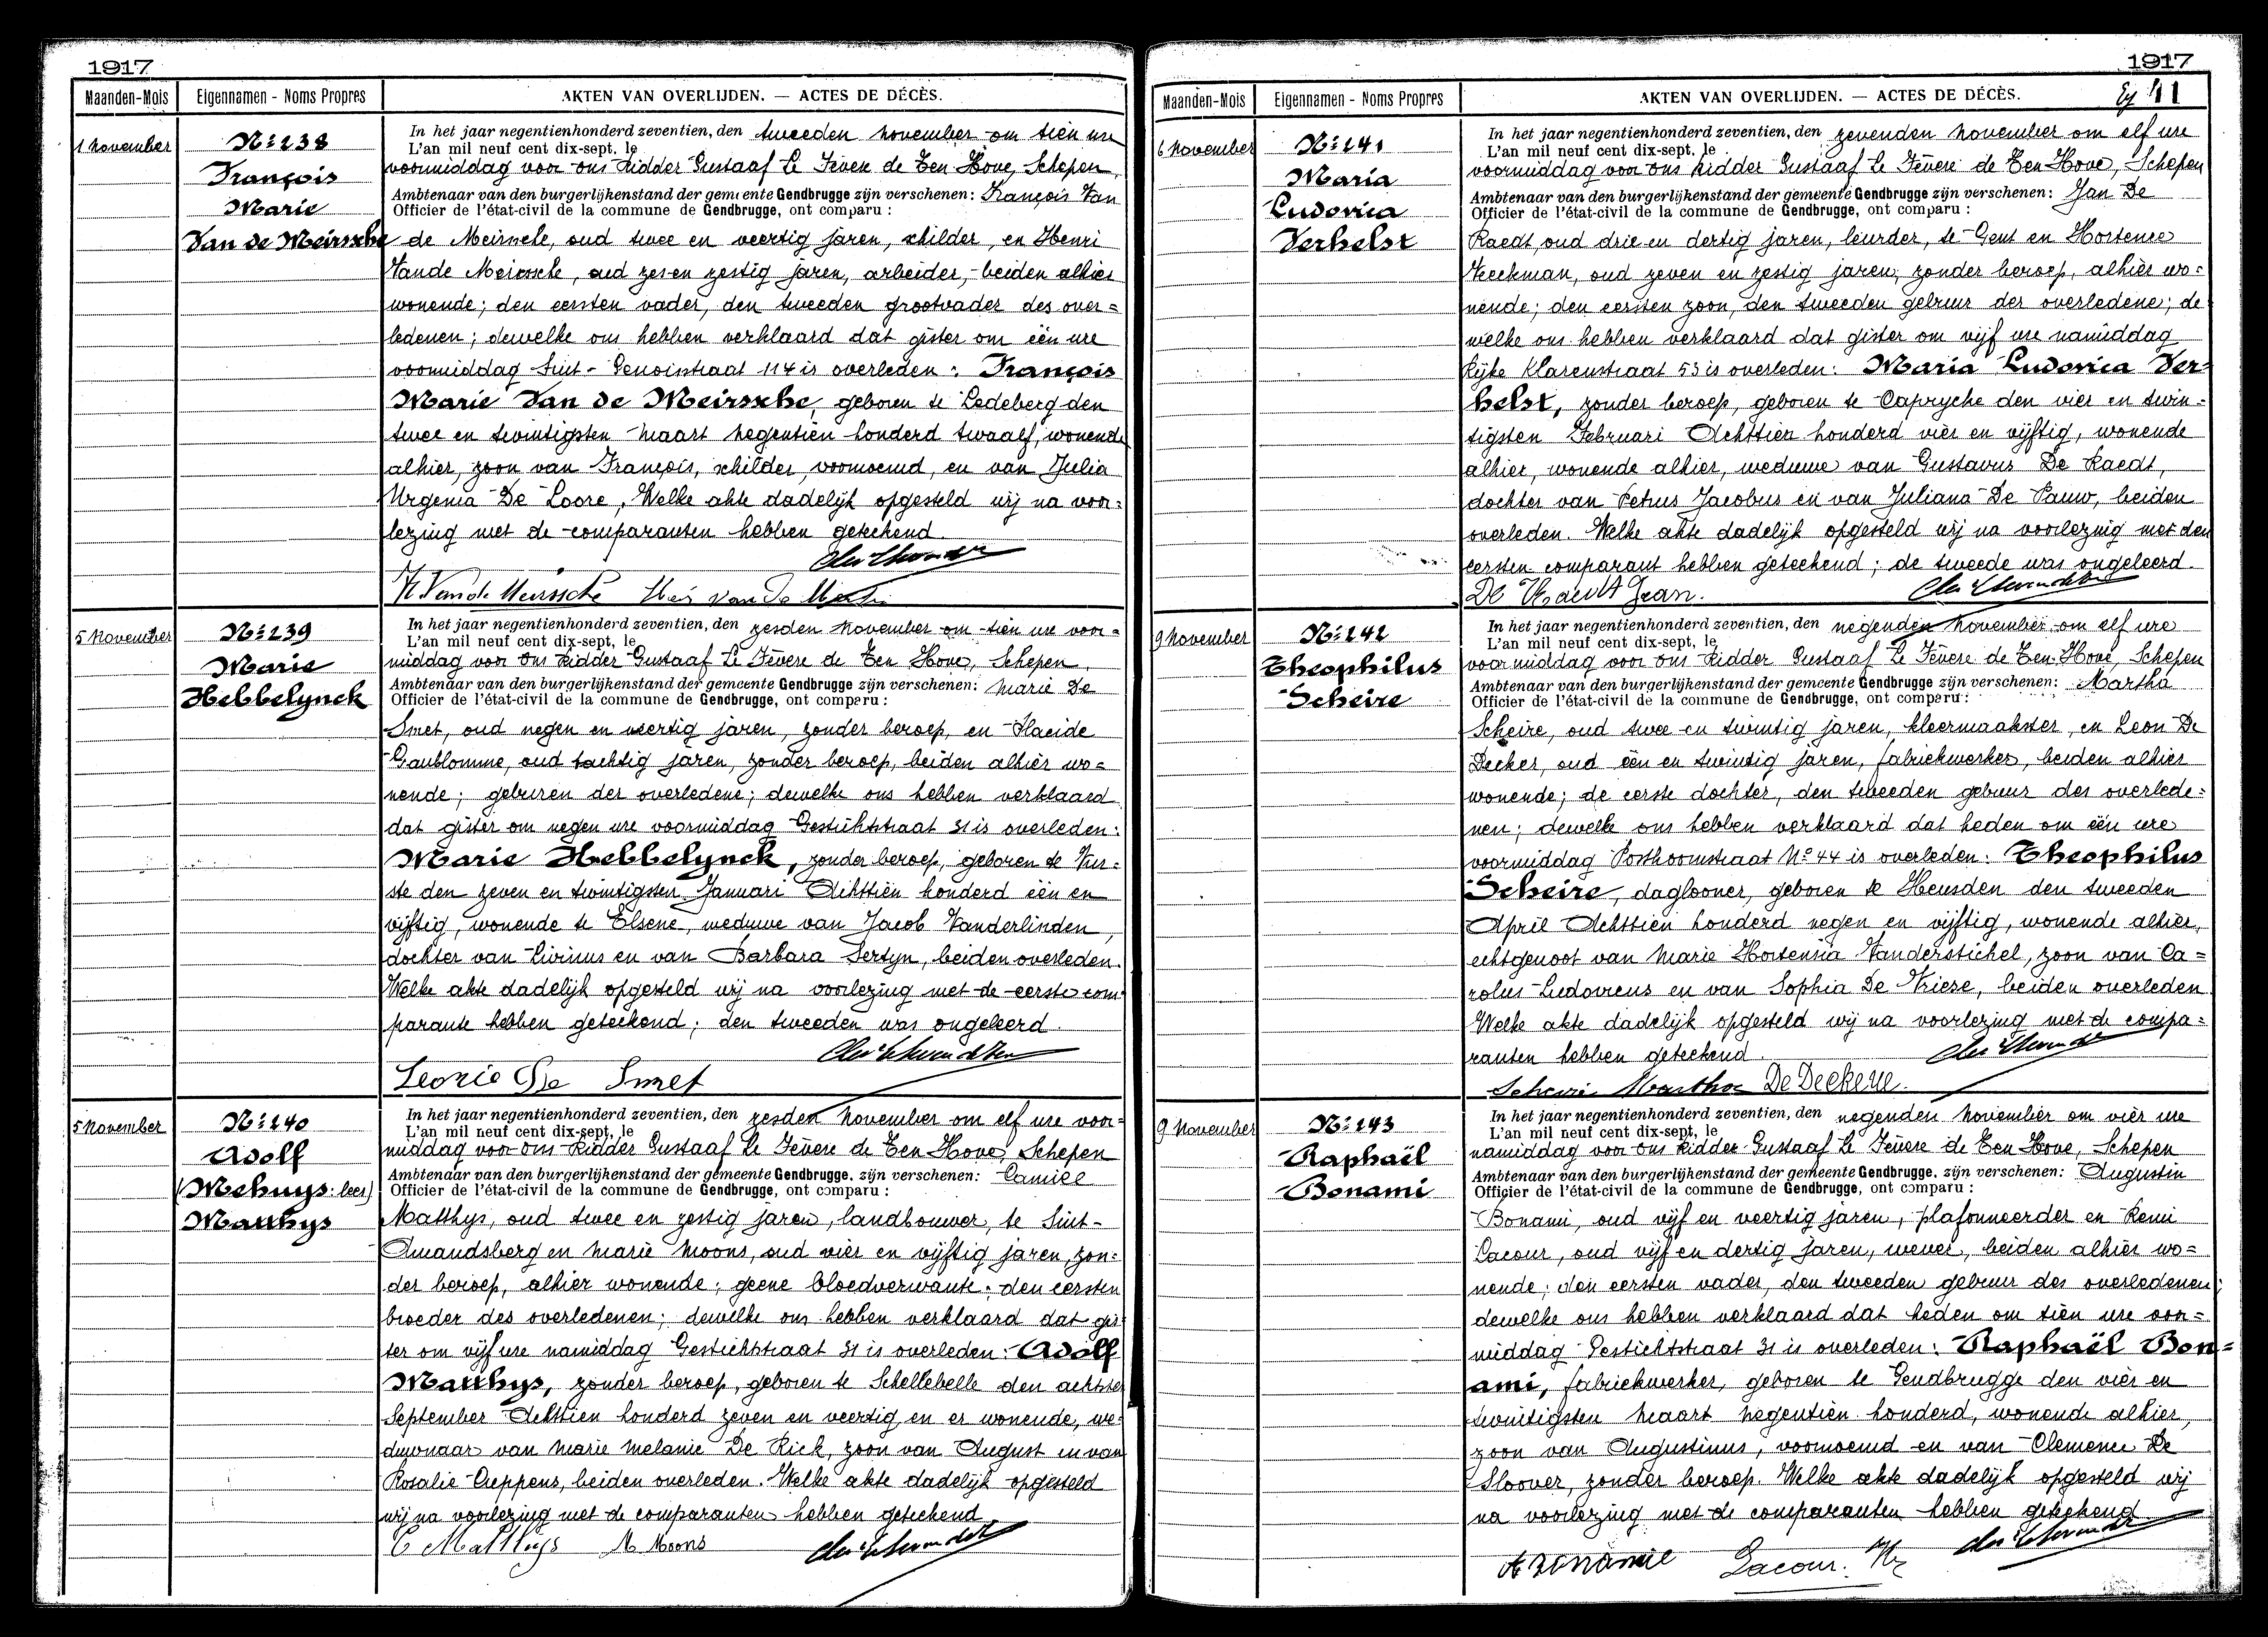 1917
Maanden-Mois
Eigennamen - Noms Propres
AKTEN VAN OVERLIJDEN. — ACTES DE DÉCÈS.
1 November
Nº 238
François
Marie
Van de Meirssche
In het jaar negentienhonderd zeventien, den tweeden November om tien ure
L'an mil neuf cent dix-sept, le
voormiddag voor ons Ridder Gustaaf Le Fevere de Ten Hove, Schepen,
Ambtenaar van den burgerlijkenstand der gemeente Gendbrugge zijn verschenen: François Van
Officier de l'état-civil de la commune de Gendbrugge, ont comparu :
de Meirssche, oud twee en veertig jaren, schilder, en Henri
Vande Meirssche, oud zes en zestig jaren, arbeider, beiden alhier
wonende; den eersten vader, den tweeden grootvader des over=
ledenen; dewelke ons hebben verklaard dat gister om één ure
voormiddag Sint- Genoisstraat 114 is overleden: François
Marie Van de Meirssche, geboren te Ledeberg den
twee en twintigsten Maart negentien honderd twaalf, wonende
alhier, zoon van François, schilder, voornoemd, en van Julia
Urgenia De Loore, Welke akte dadelijk opgesteld wij na voor=
lezing met de comparanten hebben geteekend.
5 November
Nº 239
Marie
Hebbelynck
In het jaar negentienhonderd zeventien, den zesden November om tien ure voor=
L'an mil neuf cent dix-sept, le
middag voor ons Ridder Gustaaf Le Fevere de Ten Hove, Schepen,
Ambtenaar van den burgerlijkenstand der gemeente Gendbrugge zijn verschenen: Marie De
Officier de l'état-civil de la commune de Gendbrugge, ont comparu :
Smet, oud negen en veertig jaren, zonder beroep, en Placide
Gaublomme, oud tachtig jaren, zonder beroep, beiden alhier wo=
nende; geburen der overledene; dewelke ons hebben verklaard
dat gister om negen ure voormiddag Gestichtstraat 31 is overleden:
Marie Hebbelynck, zonder beroep, geboren te Vur=
ste den zeven en twintigsten Januari Achttien honderd één en
vijftig, wonende te Elsene, weduwe van Jacob Vanderlinden,
dochter van Livinus en van Barbara Sertyn, beiden overleden.
Welke akte dadelijk opgesteld wij na voorlezing met de eerste com=
parante hebben geteekend; den tweeden was ongeleerd.
Leonie De Smet
5 November
Nº 240
Adolf
(Mehuys: lees)
Matthys
In het jaar negentienhonderd zeventien, den zesden November om elf ure voor=
L'an mil neuf cent dix-sept, le
middag voor ons Ridder Gustaaf Le Fevere de Ten Hove, Schepen
Ambtenaar van den burgerlijkenstand der gemeente Gendbrugge, zijn verschenen: Camiel
Officier de l'état-civil de la commune de Gendbrugge, ont comparu :
Matthys, oud twee en zestig jaren, landbouwer, te Sint-
Amandsberg en Marie Moons, oud vier en vijftig jaren, zon=
der beroep, alhier wonende; geene bloedverwante; den eersten
broeder des overledenen; dewelke ons hebben verklaard dat gis=
ter om vijf ure namiddag Gestichtstraat 31 is overleden: Adolf
Matthys, zonder beroep, geboren te Schellebelle den achtste
September Achttien honderd zeven en veertig en er wonende, we=
duwnaar van Marie Melanie De Rick, zoon van August en van
Rosalie Cuppens, beiden overleden. Welke akte dadelijk opgesteld
wij na voorlezing met de comparanten hebben geteekend.
C Matthys M Moons
1917
41
Maanden-Mois
Eigennamen - Noms Propres
AKTEN VAN OVERLIJDEN. — ACTES DE DÉCÈS.
6 November
Nº 241
Maria
Ludovica
Verhelst
In het jaar negentienhonderd zeventien, den zevenden November om elf ure
L'an mil neuf cent dix-sept, le
voormiddag voor ons Ridder Gustaaf Le Fevere de Ten Hove, Schepen
Ambtenaar van den burgerlijkenstand der gemeente Gendbrugge zijn verschenen: Jan De
Officier de l'état-civil de la commune de Gendbrugge, ont comparu :
Raedt, oud drie en dertig jaren, leurder, te Gent en Hortence
Heckman, oud zeven en zestig jaren, zonder beroep, alhier wo=
nende; den eersten zoon, den tweeden gebuur der overledene; de
welke ons hebben verklaard dat gister om vijf ure namiddag
Rijke Klarenstraat 53 is overleden: Maria Ludovica Ver=
helst, zonder beroep, geboren te Caprycke den vier en twin=
tigsten Februari Achttien honderd vier en vijftig, wonende
alhier, wonende alhier, weduwe van Gustavus De Raedt,
dochter van Petrus Jacobus en van Juliana De Pauw, beiden
overleden. Welke akte dadelijk opgesteld wij na voorlezing met den
eersten comparant hebben geteekend; de tweede was ongeleerd.
De Raedt Jean.
9 November
Nº 242
Theophilus
Scheire
In het jaar negentienhonderd zeventien, den negenden November om elf ure
L'an mil neuf cent dix-sept, le
voormiddag voor ons Ridder Gustaaf Le Fevere de Ten Hove, Schepen
Ambtenaar van den burgerlijkenstand der gemeente Gendbrugge zijn verschenen: Martha
Officier de l'état-civil de la commune de Gendbrugge, ont comparu :
Scheire, oud twee en twintig jaren, kleermaakster, en Leon De
Decker, oud één en twintig jaren, fabriekwerker, beiden alhier
wonende; de eerste dochter, den tweeden gebuur des overlede=
nen; dewelke ons hebben verklaard dat heden om één ure
voormiddag Posthoornstraat Nº 44 is overleden: Theophilus
Scheire, daglooner, geboren te Heusden den tweeden
April Achttien honderd negen en vijftig, wonende alhier,
echtgenoot van Marie Hortensia Vanderstichel, zoon van Ca=
rolus Ludovicus en van Sophia De Vrieze, beiden overleden.
Welke akte dadelijk opgesteld wij na voorlezing met de compa=
ranten hebben geteekend.
Scheire Martha De Deckere
9 November
Nº 243
Raphaël
Bonami
In het jaar negentienhonderd zeventien, den negenden November om vier ure
L'an mil neuf cent dix-sept, le
namiddag voor ons Ridder Gustaaf Le Fevere de Ten Hove, Schepen
Ambtenaar van den burgerlijkenstand der gemeente Gendbrugge, zijn verschenen: Augustin
Officier de l'état-civil de la commune de Gendbrugge, ont comparu :
Bonami, oud vijf en veertig jaren, plafonneerder en Remi
Lacour, oud vijf en dertig jaren, wever, beiden alhier wo=
nende; den eersten vader, den tweeden gebuur des overledenen;
dewelke ons hebben verklaard dat heden om tien ure voor=
middag Gestichtstraat 31 is overleden: Raphaël Bon=
ami, fabriekwerker, geboren te Gendbrugge den vier en
twintigsten Maart negentien honderd, wonende alhier,
zoon van Augustinus, voornoemd en van Clemence De
Sloover, zonder beroep. Welke akte dadelijk opgesteld wij
na voorlezing met de comparanten hebben geteekend.
A Bonamie Lacour. R